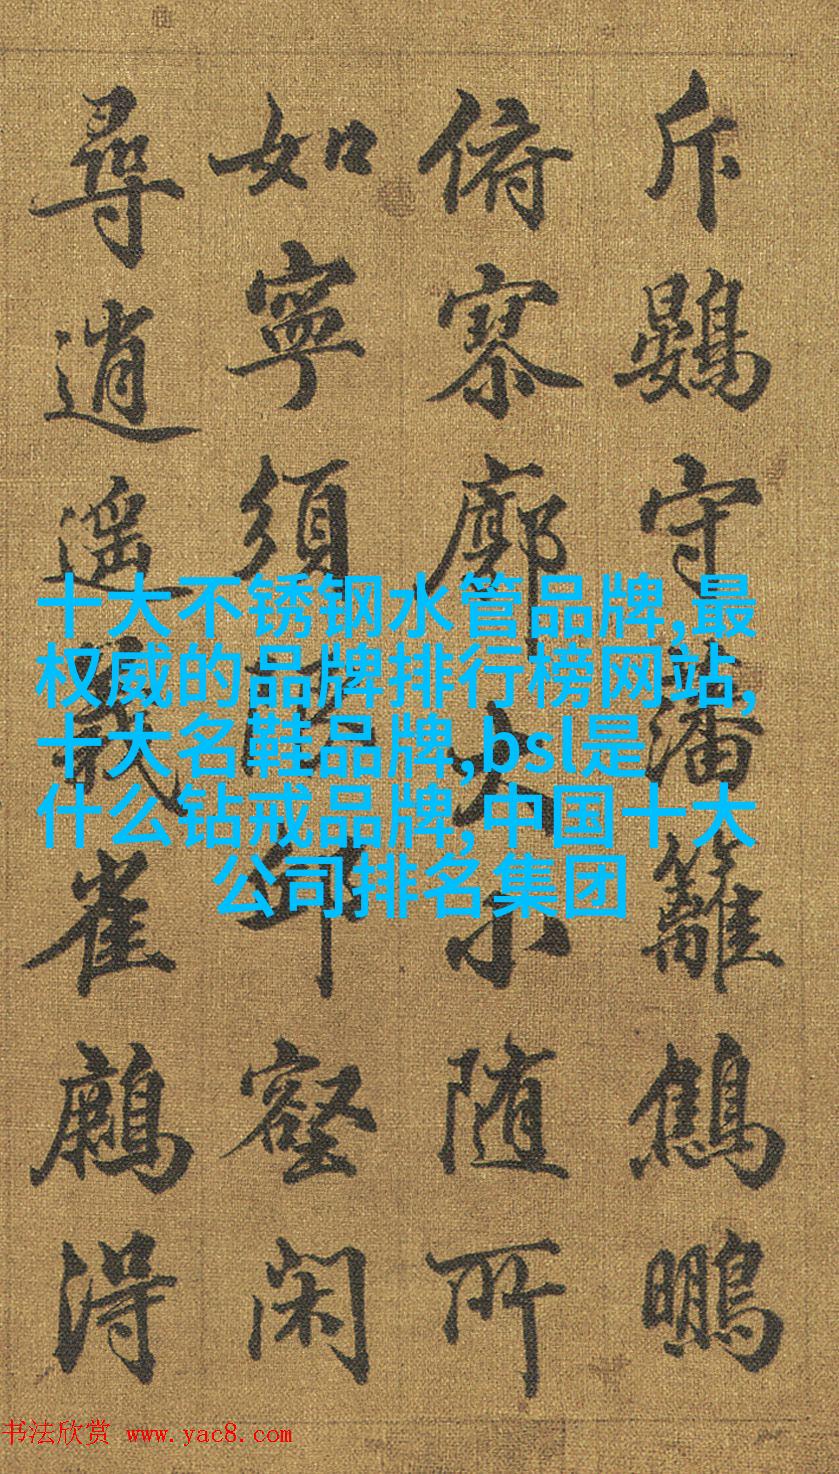 斥鷃守藩籬鷦鵬
俯寥廓大小随所
如寧須壑閑
尋逍遥雀得
十大不锈钢水管品牌,最
权威的品牌排行榜网站,
十大名鞋品牌,bsl是
什么钻戒品牌,中国十大
公司排名集团
书法欣赏 www.yac8.com